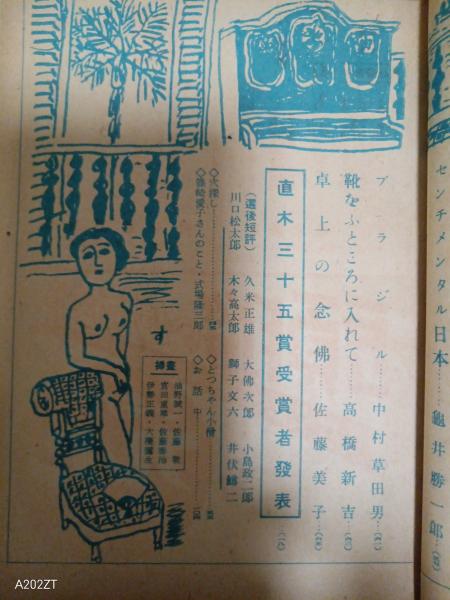 センチメンタル日本……龜井勝一郎
ブラジル……中村草田男
靴をふところに入れて……高橋新吉
卓上の念佛……佐藤美子
直木三十五賞受賞者發表
(選後短評)
久米正雄 大佛次郎 小島政二郎
川口松太郎 木々高太郎 獅子文六 井伏鱒二
◇穴探し
◇とつちやん小僧
式場隆三郎
◇お話中
す
揷畫
宮田重雄・佐藤泰治
A202ZT